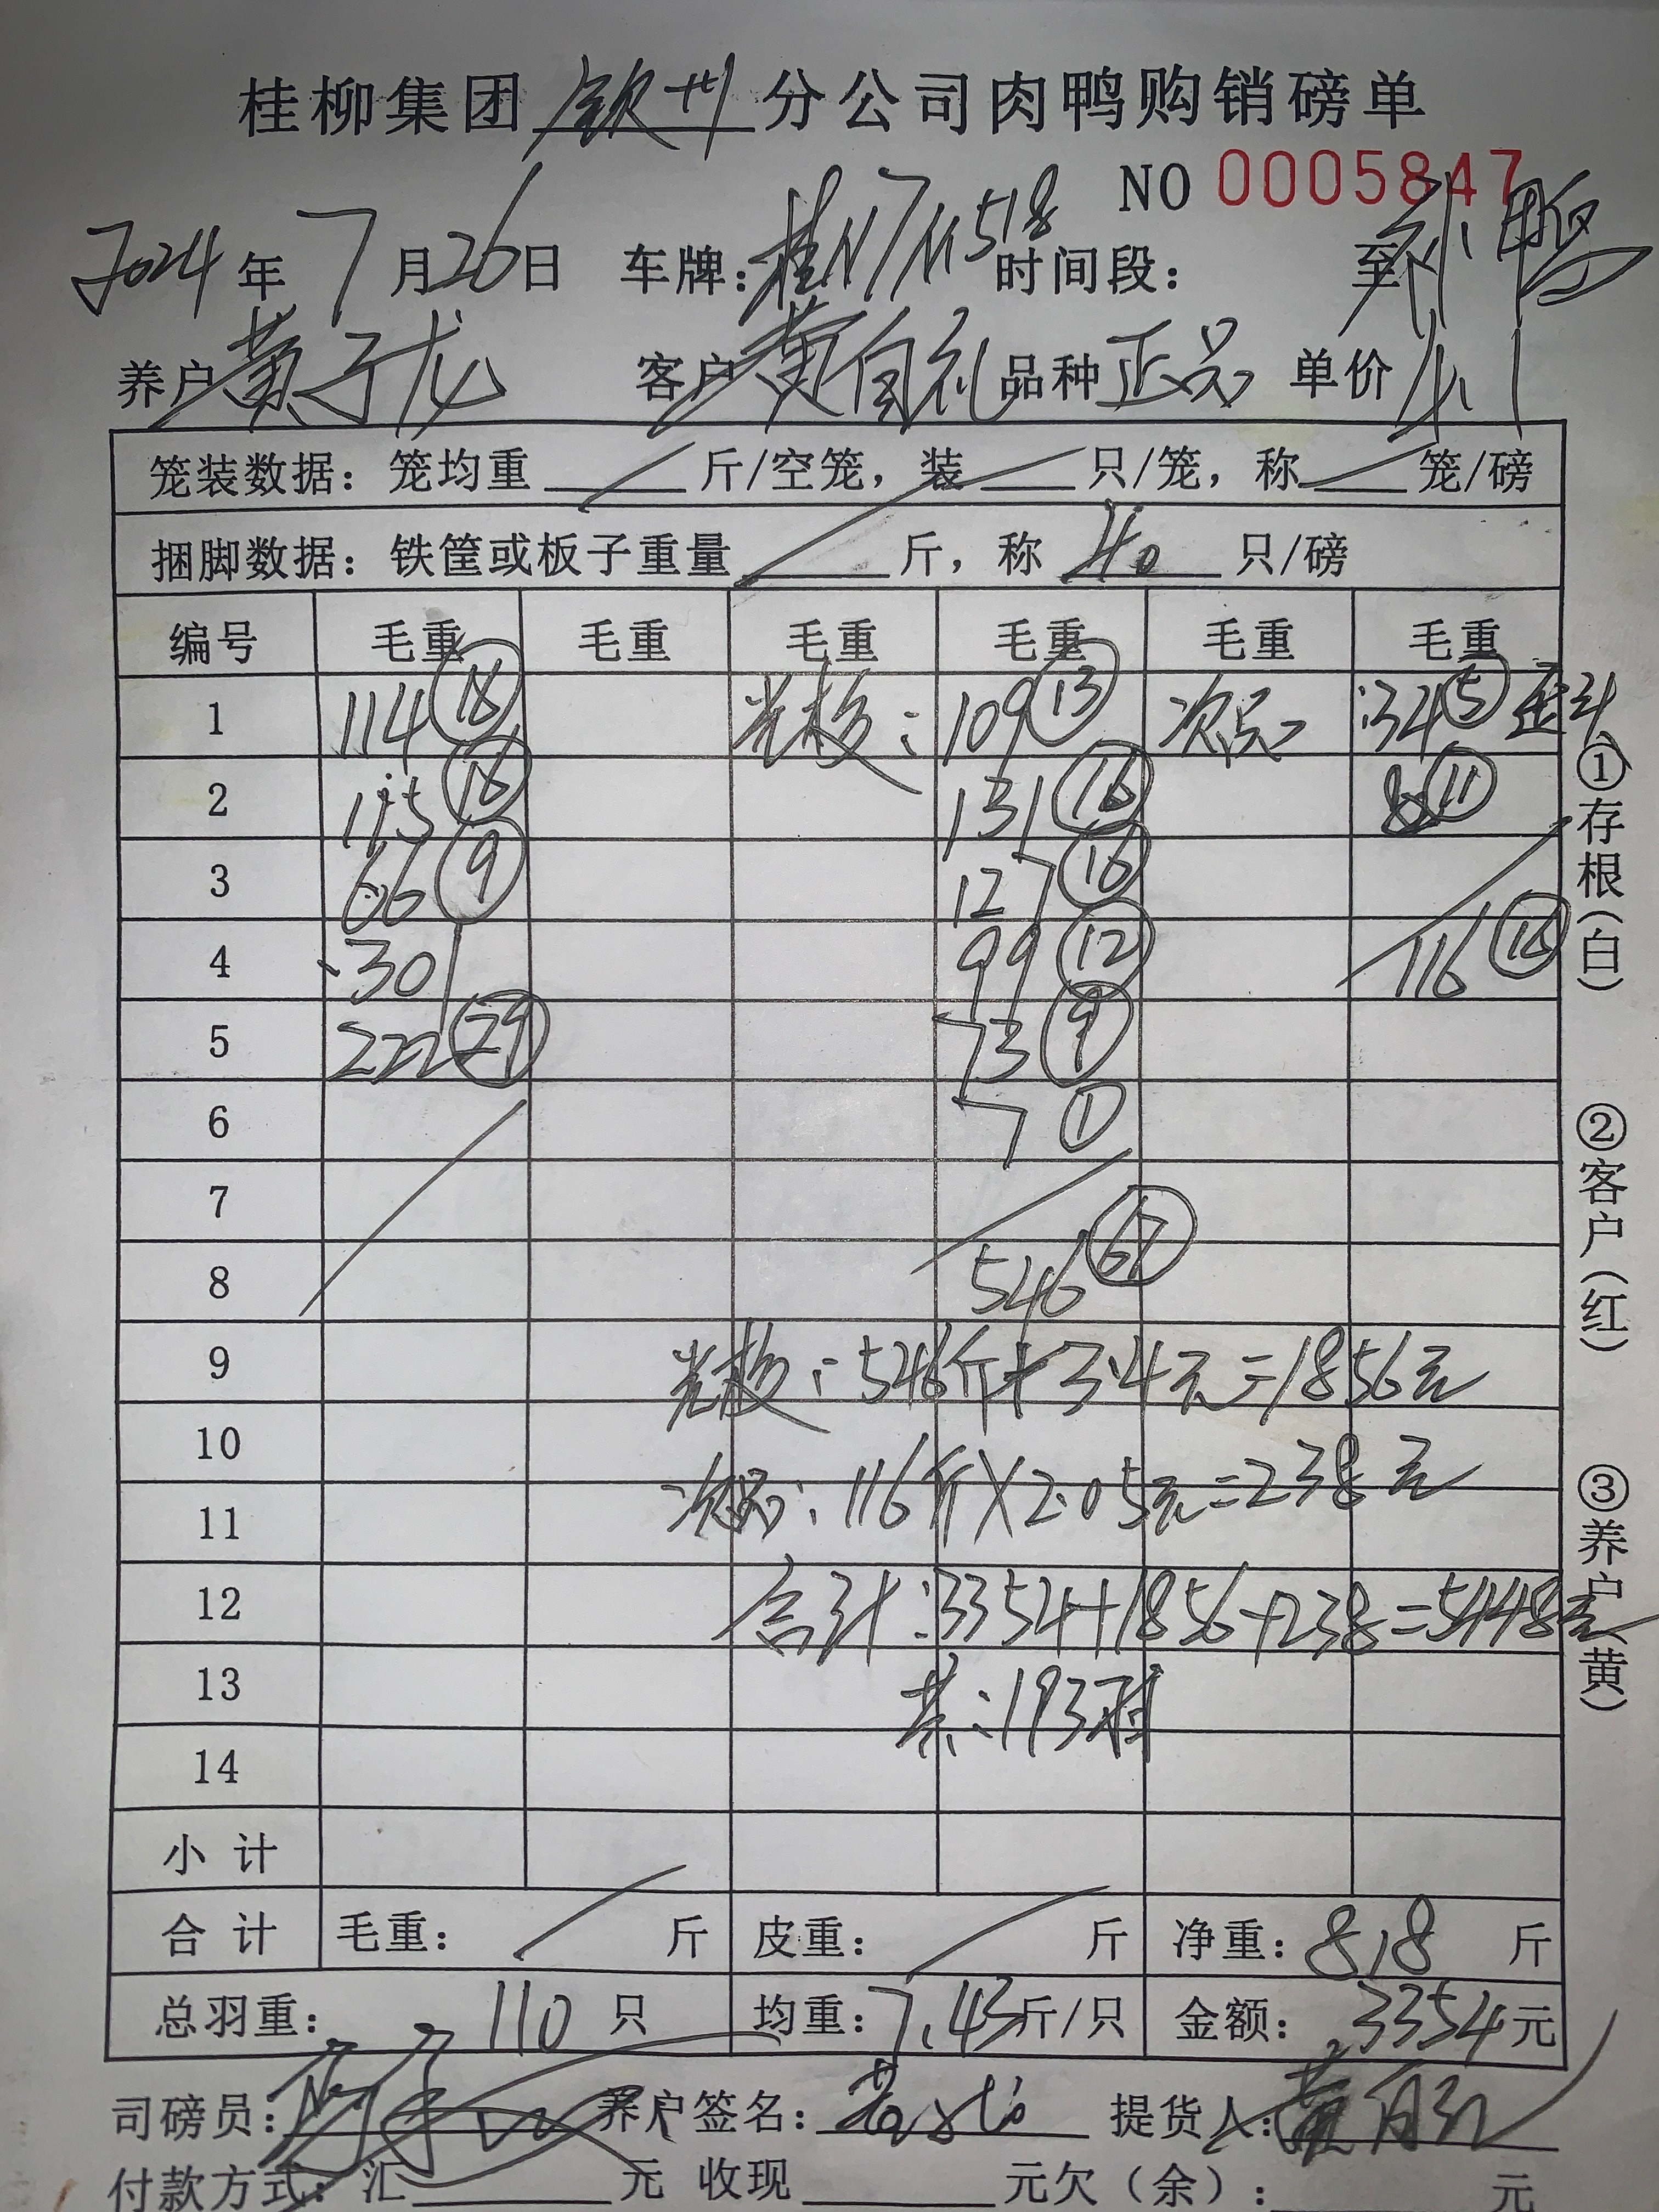 桂柳集团 钦州 分公司肉鸭购销磅单
NO 0005847
2024 年 7 月 26 日 车牌：桂N7M518 时间段： 至
养户 黄子龙 客户 黄自礼 品种 正品 单价 4.1
笼装数据：笼均重 斤/空笼，装 只/笼，称 笼/磅
捆脚数据：铁筐或板子重量 斤，称 40 只/磅
编号 毛重 毛重 毛重 毛重 毛重 毛重
1 114 18 109 13 次品 34 5
2 115 16 131 16 8 11
3 66 9 127 16
4 301 99 12 116 16
5 222 29 73 9
6 7 1
7
8 546 67
9 546斤×3.4元=1856元
10
11 次品：116斤×2.05元=238元
12 合计：3354+1856+238=5448元
13 共：193
14
小 计
合 计 毛重： 斤 皮重： 斤 净重：818 斤
总羽重： 110 只 均重：7.43斤/只 金额：3354元
司磅员： 养户签名： 提货人：
付款方式：汇 元 收现 元欠（余）： 元
①存根（白）
②客户（红）
③养户（黄）